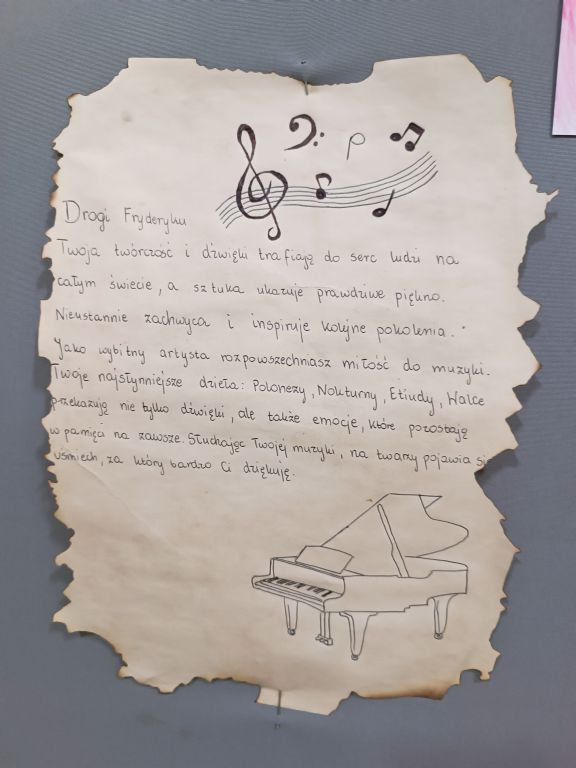 Drogi Fryderyku
Twoja twórczość i dźwięki trafiają do serc ludzi na
całym świecie, a sztuka ukazuje prawdziwe piękno.
Nieustannie zachwyca i inspiruje kolejne pokolenia.
Jako wybitny artysta rozpowszechniasz miłość do muzyki.
Twoje najsłynniejsze dzieła: Polonezy, Nokturny, Etiudy, Walce
przekazują nie tylko dźwięki, ale także emocje, które pozostają
w pamięci na zawsze. Słuchając Twojej muzyki, na twarzy pojawia się
uśmiech, za który bardzo Ci dziękuję.